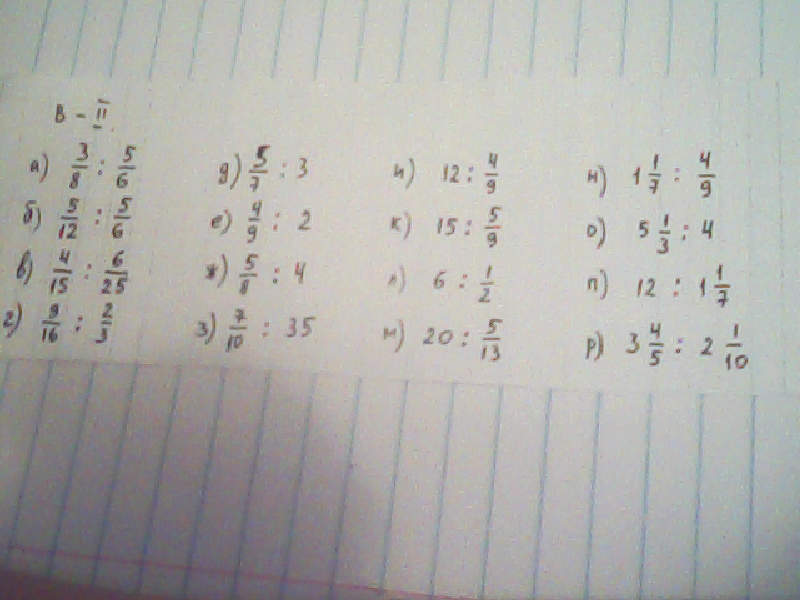 В - II
а) 3/8 : 5/6
б) 5/12 : 5/6
в) 4/15 : 6/25
г) 9/16 : 2/3
д) 5/7 : 3
е) 4/9 : 2
ж) 5/8 : 4
з) 7/10 : 35
и) 12 : 4/9
к) 15 : 5/9
л) 6 : 1/2
м) 20 : 5/13
н) 1 1/7 : 4/9
о) 5 1/3 : 4
п) 12 : 1 1/7
р) 3 4/5 : 2 1/10